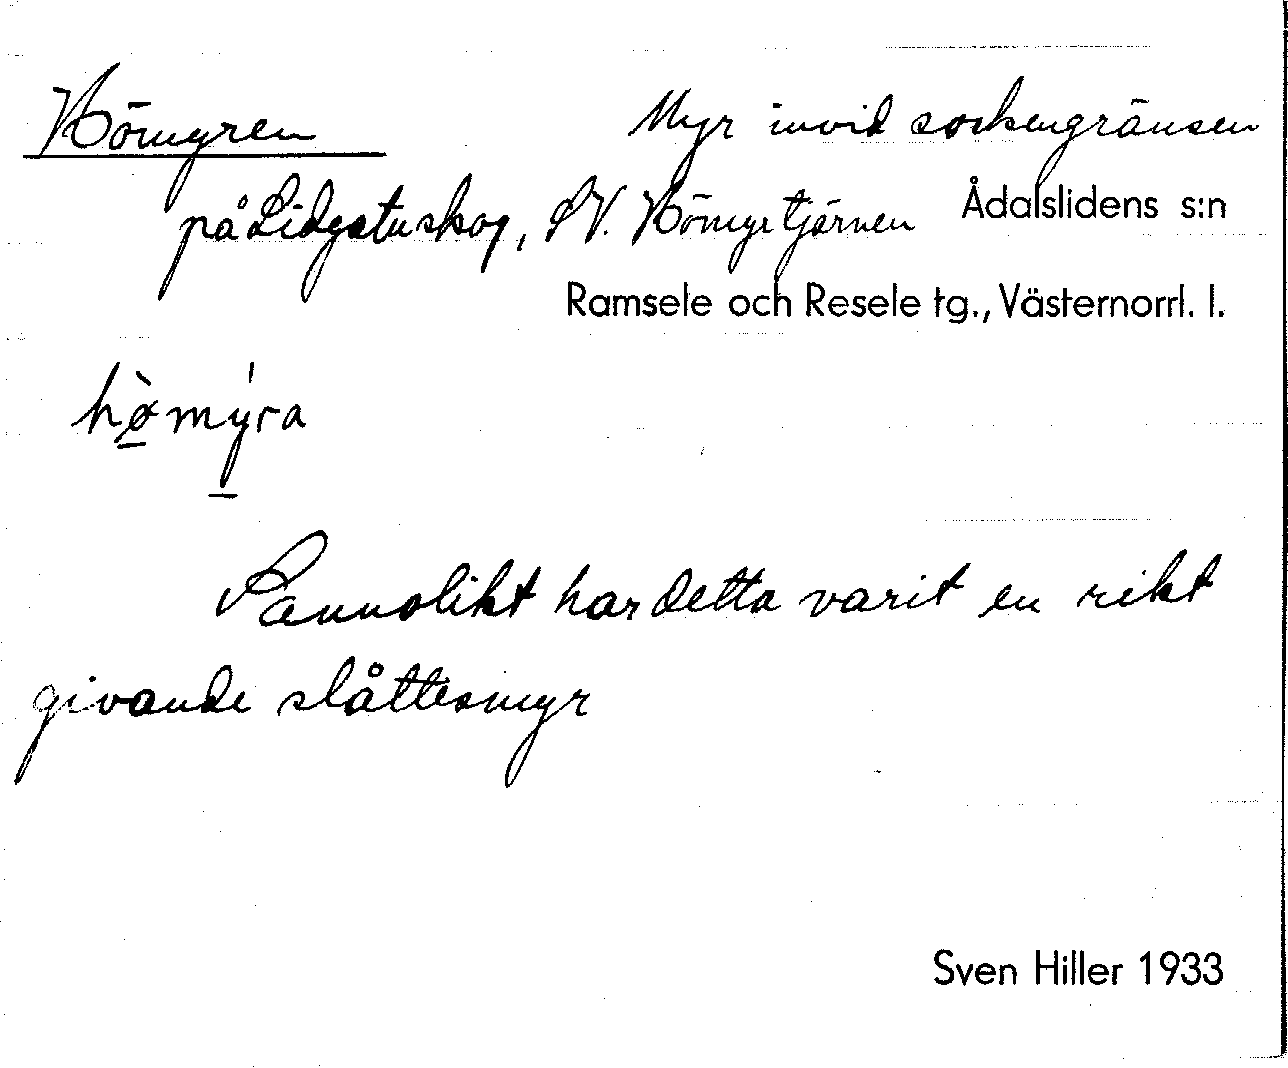 Hömyren
Myr invid sockengränsen
på Lidgatu skog, SV. Hömyrtjärnen
Ådalslidens s:n
Ramsele och Resele tg., Västernorrl. l.
hø̀mýra
Sannolikt har detta varit en rikt
givande slåttesmyr
Sven Hiller 1933